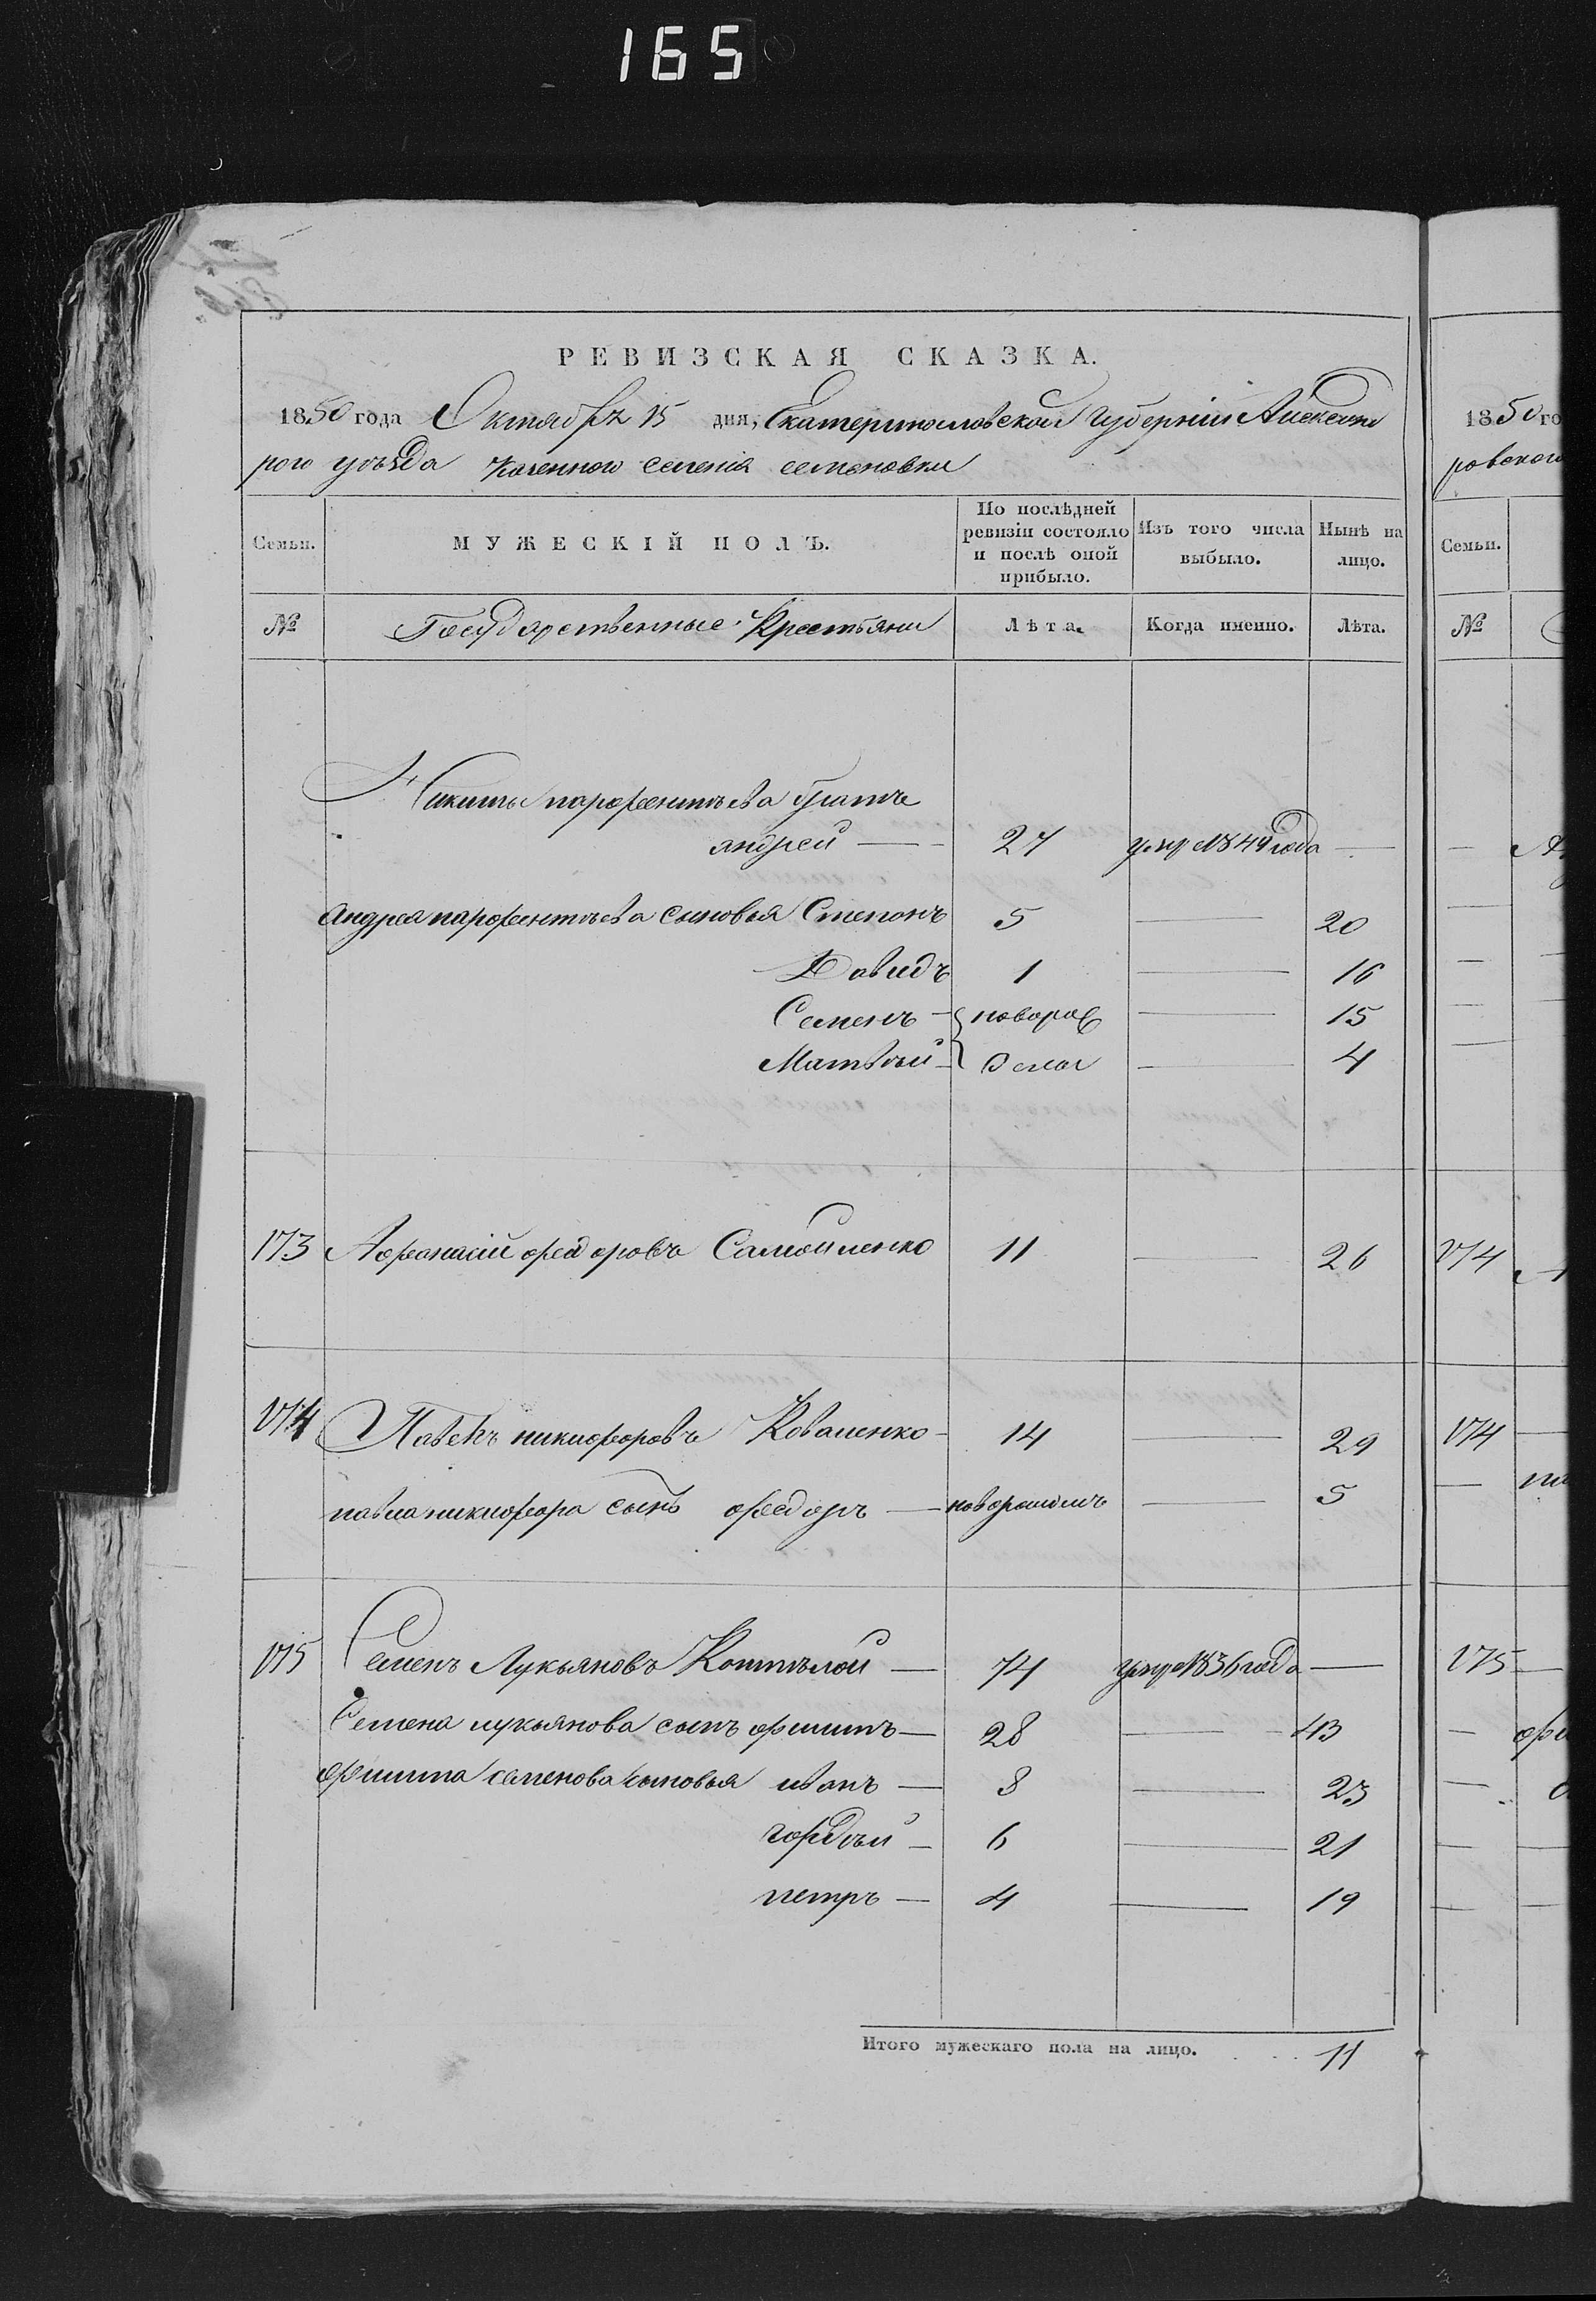 165
РЕВИЗСКАЯ СКАЗКА.
1850 года Октября 15 дня, Екатеринославской Губерніи Александ
рого уѣзда Казенного селенія семеновки
Семьи. МУЖЕСКІЙ ПОЛЪ. По послѣдней ревизіи состояло и послѣ оной прибыло. Изъ того числа выбыло. Нынѣ на лицо.
№ Государственные Крестьяни Лѣта. Когда именно. Лѣта.
Никиты парфентьева братъ
андрей — 27 умр 1849 года —
Андрея парфентьева сыновья Степанъ 5 — 20
Давидъ 1 — 16
Семенъ — новорож 15
Матвѣй — дены — 4
173 Афанасій федоровъ Самойленко 11 — 26
174 Павелъ никифоровъ Коваленко — 14 — 29
павла никифора сынъ федоръ — новорожденъ — 5
175 Семенъ Лукьяновъ — 74 умр 1836 года —
Семена лукьянова сынъ филипъ — 28 — 43
филипа семенова сыновья иванъ — 8 — 23
гордѣй — 6 — 21
петръ — 4 — 19
Итого мужескаго пола на лицо. 11
1850 го
ровского
Семьи.
№
174
174
175